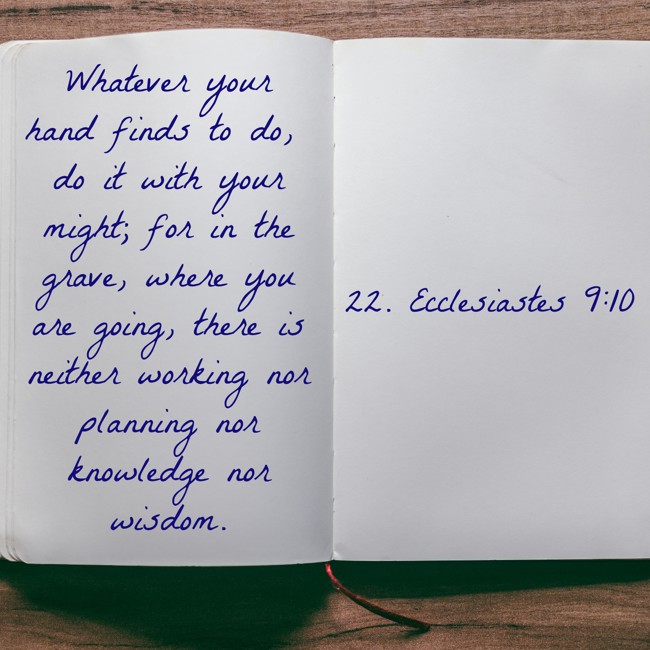 Whatever your
hand finds to do,
do it with your
might; for in the
grave, where you
are going, there is
neither working nor
planning nor
knowledge nor
wisdom.
22. Ecclesiastes 9:10